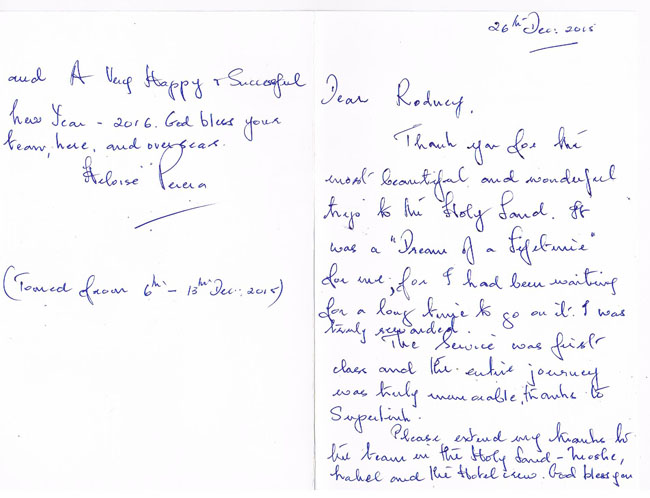 26th Dec: 2015
Dear Rodney,
Thank you for the
most beautiful and wonderful
trip to the Holy Land. It
was a "Dream of a Lifetime"
for me, for I had been waiting
for a long time to go on it. I was
truly rewarded.
The Service was first
class and the entire journey
was truly memorable, thanks to
Superlink.
Please extend my thanks to
the team in the Holy Land - Moshe,
and the Hotel crew. God bless you
and A Very Happy & Successful
New Year - 2016. God bless your
team, here, and overseas.
Heloise Perera
(Toured from 6th - 13th Dec: 2015)